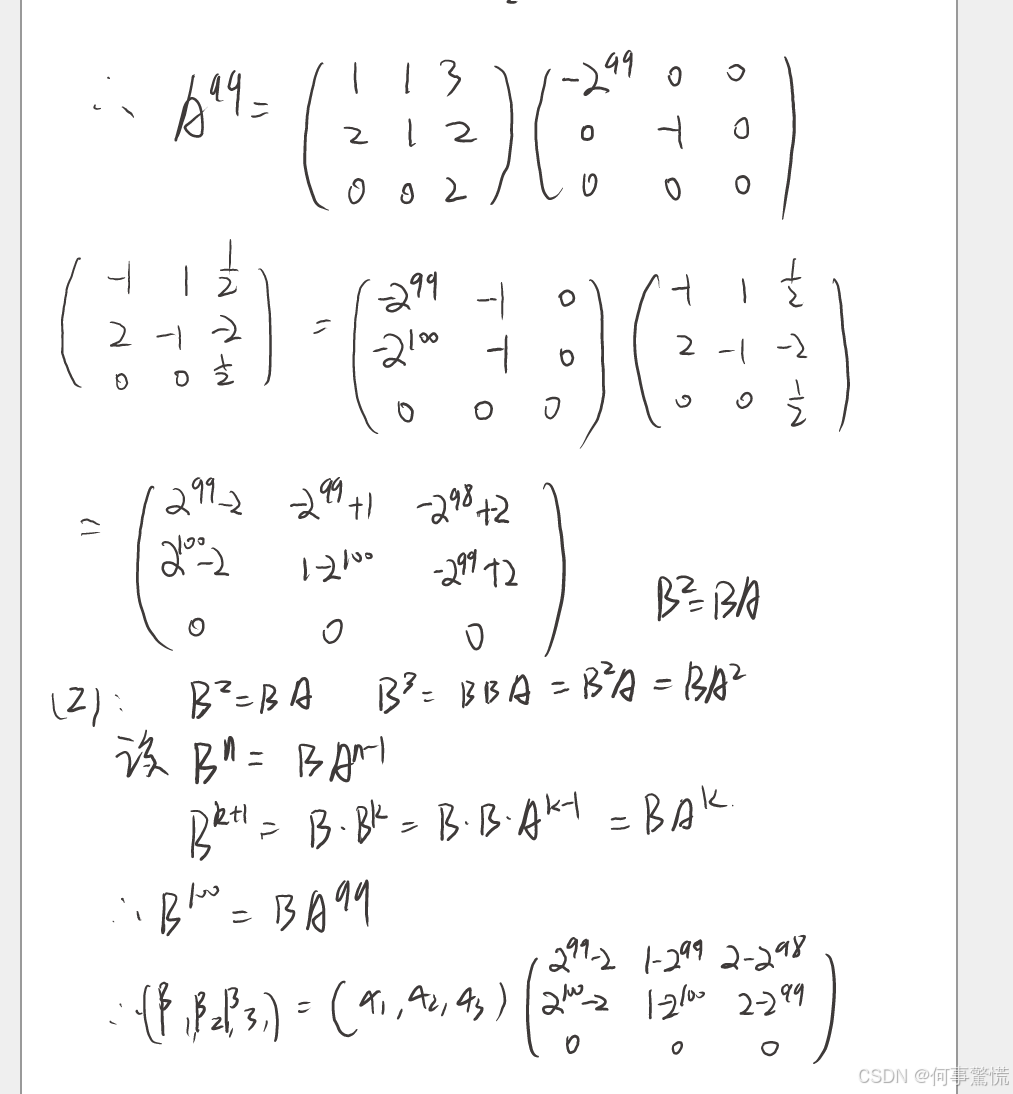 ∴ A^99 = ( 1 1 3 ) ( -2^99 0 0 )
( 2 1 2 ) ( 0 -1 0 )
( 0 0 2 ) ( 0 0 0 )
( -1 1 1/2 ) = ( -2^99 -1 0 ) ( -1 1 1/2 )
( 2 -1 -2 ) ( -2^100 -1 0 ) ( 2 -1 -2 )
( 0 0 1/2 ) ( 0 0 0 ) ( 0 0 1/2 )
= ( 2^99-2 -2^99+1 -2^98+2 )
( 2^100-2 1-2^100 -2^99+2 )
( 0 0 0 )
B^2=BA
(2): B^2=BA B^3= BBA = B^2A = BA^2
该 B^n = BA^n-1
B^k+1 = B·B^k = B·B·A^k-1 = BA^k.
∴ B^100 = BA^99
∴ (β1,β2,β3,) = (α1,α2,α3) ( 2^99-2 1-2^99 2-2^98 )
( 2^100-2 1-2^100 2-2^99 )
( 0 0 0 )
CSDN @何事驚慌